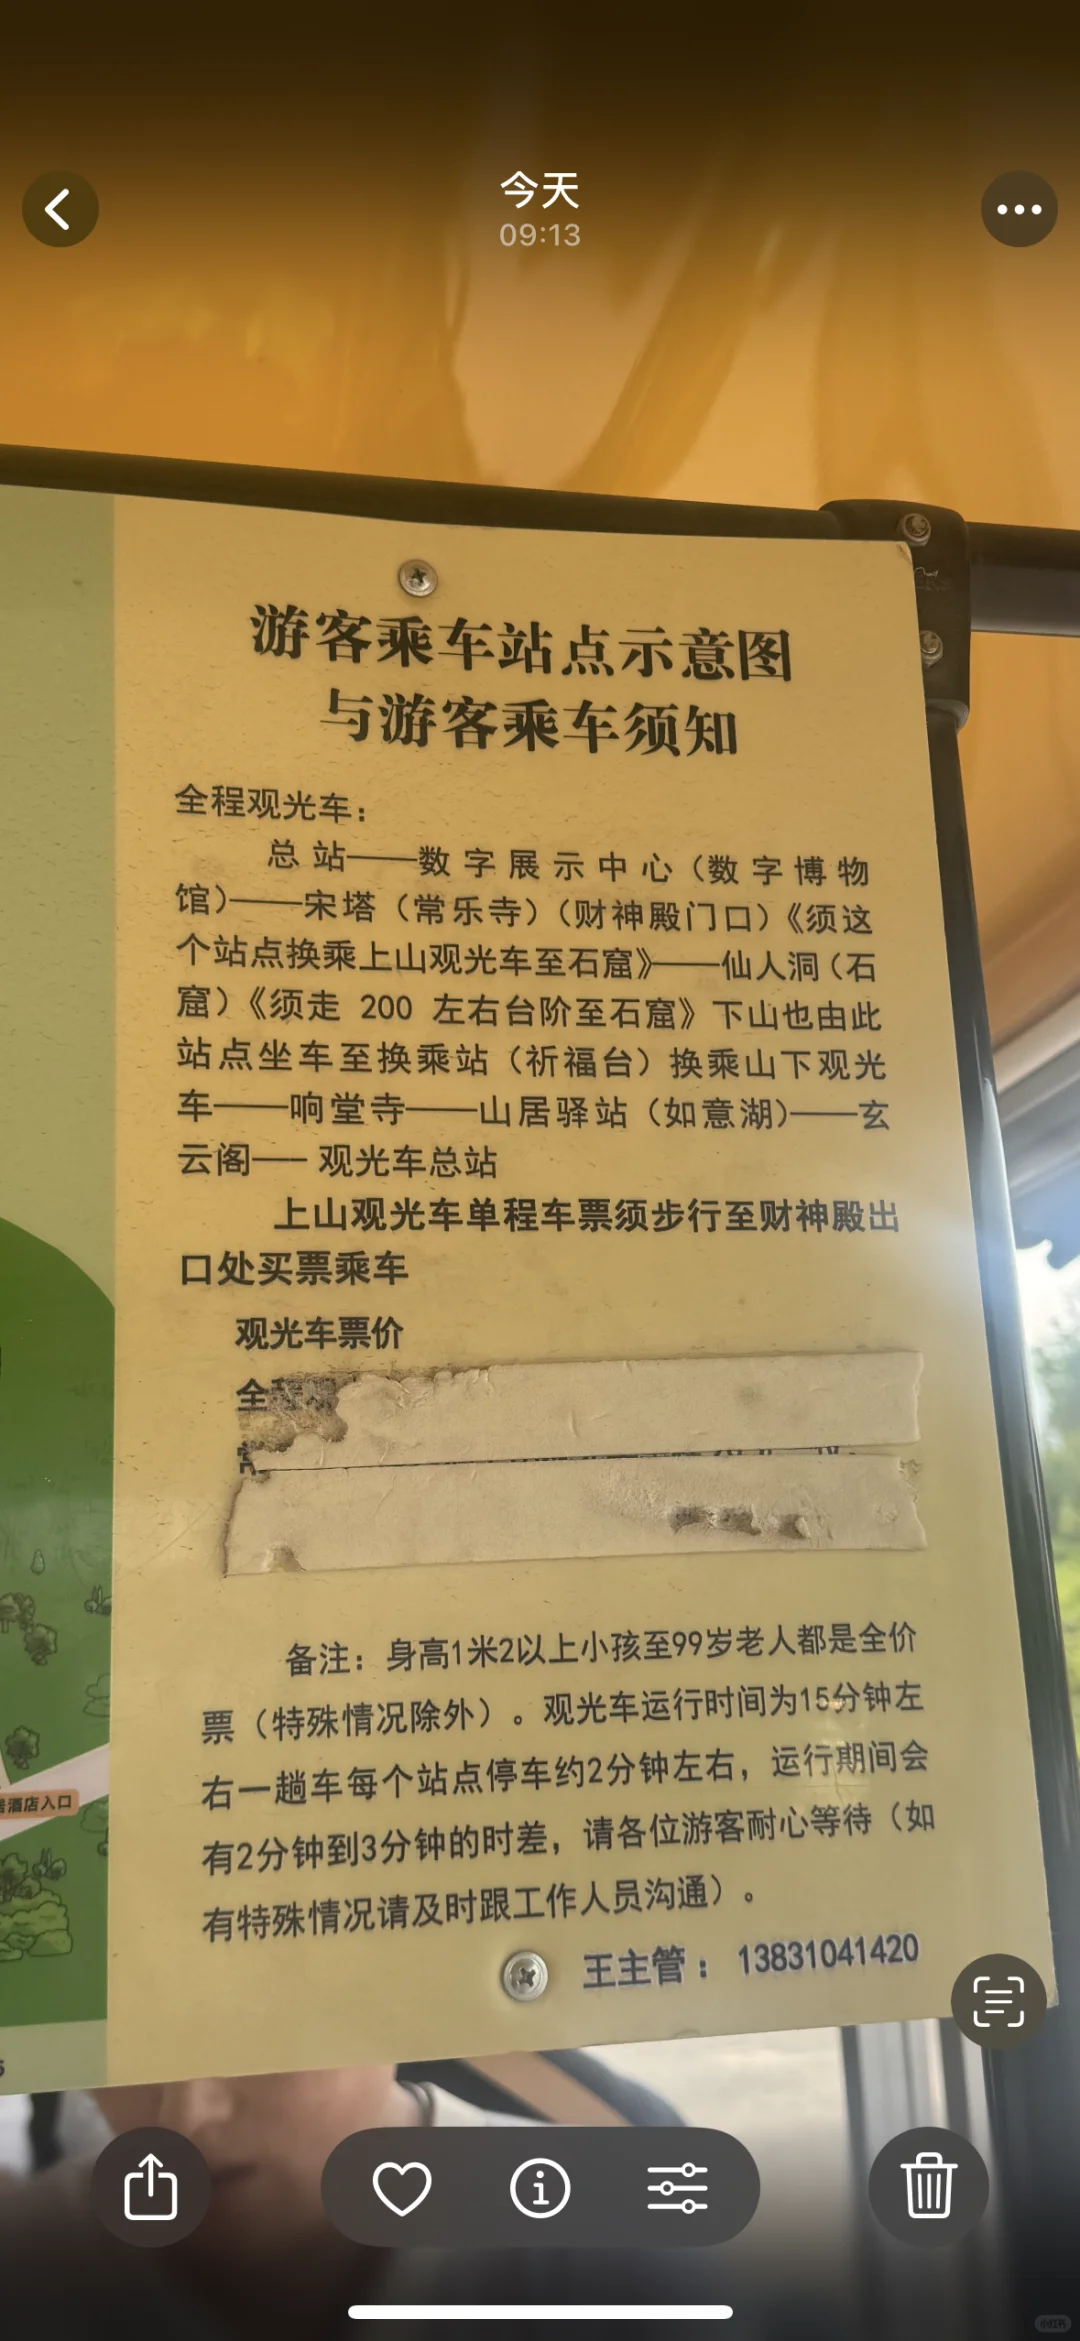 今天
09:13
游客乘车站点示意图
与游客乘车须知
全程观光车：
总站——数字展示中心（数字博物
馆）——宋塔（常乐寺）（财神殿门口）《须这
个站点换乘上山观光车至石窟》——仙人洞（石
窟）《须走 200 左右台阶至石窟》下山也由此
站点坐车至换乘站（祈福台）换乘山下观光
车——响堂寺——山居驿站（如意湖）——玄
云阁—— 观光车总站
上山观光车单程车票须步行至财神殿出
口处买票乘车
观光车票价
全程观
备注：身高1米2以上小孩至99岁老人都是全价
票（特殊情况除外）。观光车运行时间为15分钟左
右一趟车每个站点停车约2分钟左右，运行期间会
有2分钟到3分钟的时差，请各位游客耐心等待（如
有特殊情况请及时跟工作人员沟通）。
王主管：13831041420
酒店入口
小红书